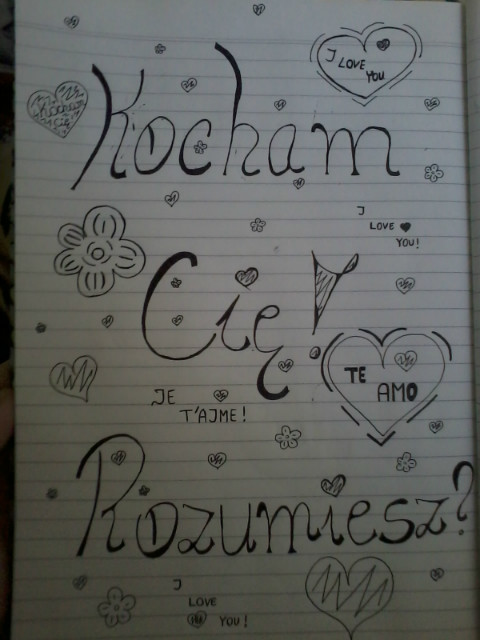 I LOVE
YOU
Kocham
Cię
Kocham
I
LOVE
YOU!
Cię!
TE
AMO
JE
T'AIME!
Rozumiesz?
I
LOVE
YOU!